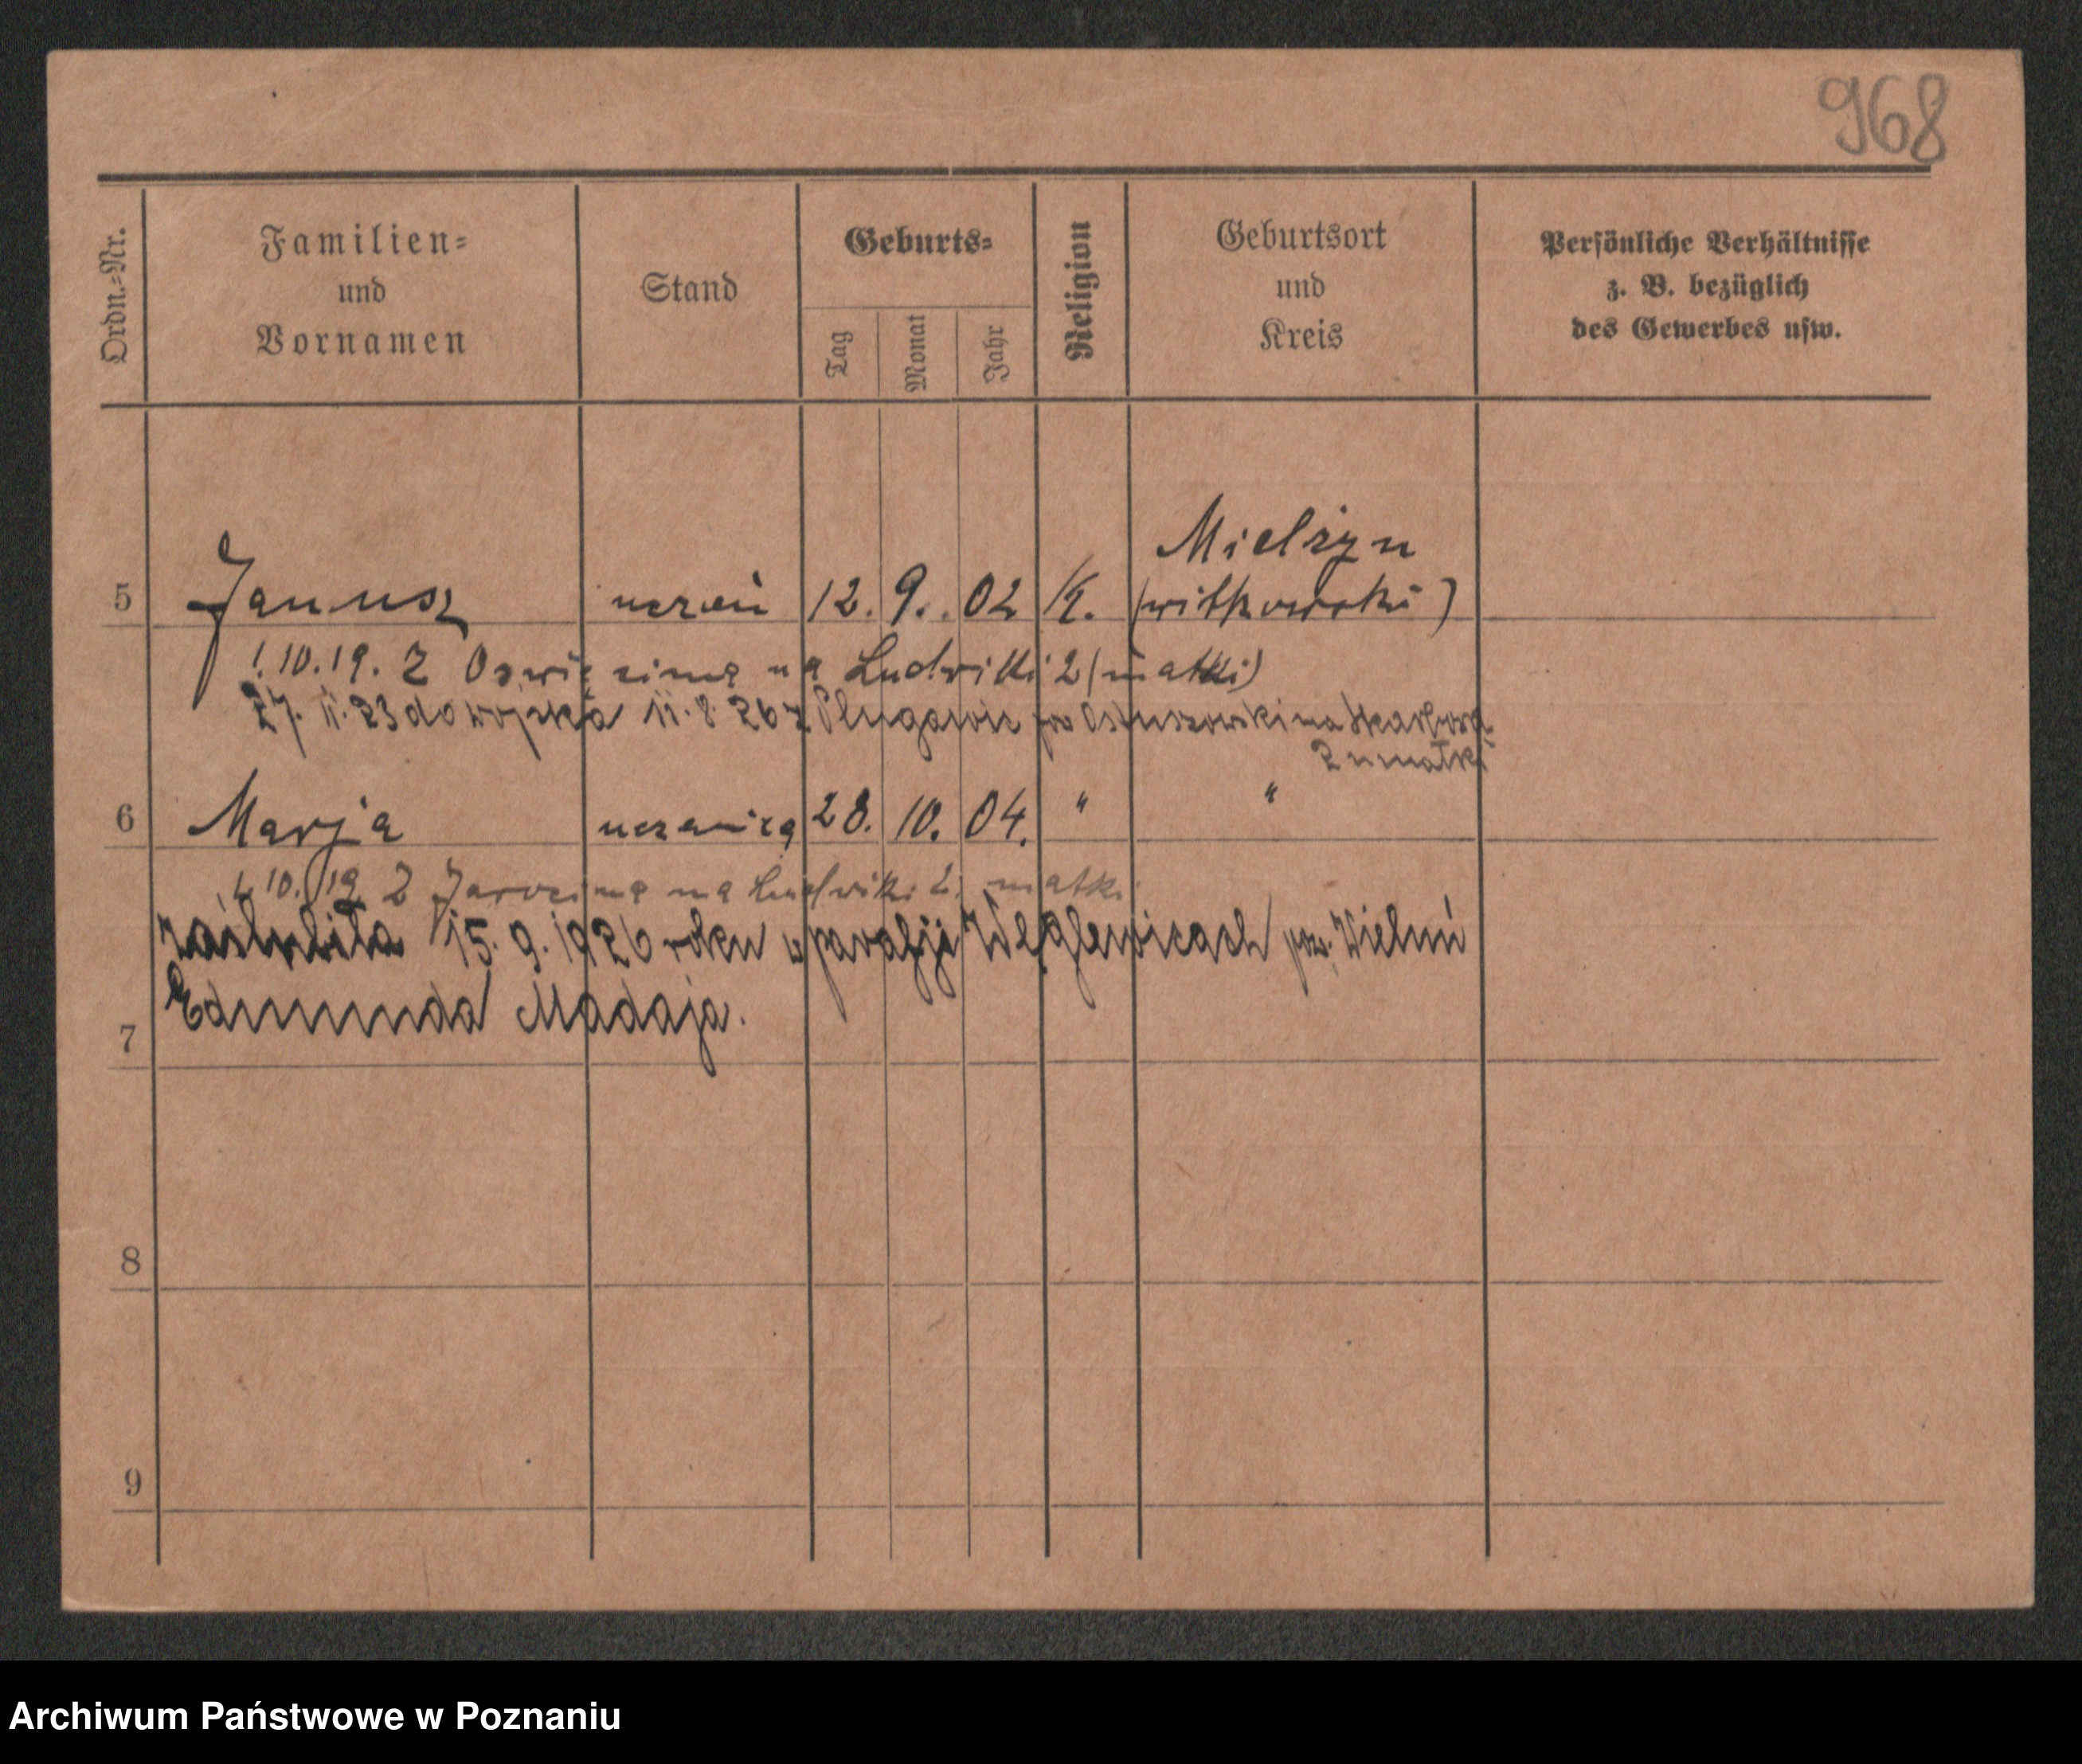 968
Ordn.-Nr. Familien- und Vornamen Stand Geburts- Tag Monat Jahr Religion Geburtsort und Kreis Persönliche Verhältnisse z. B. bezüglich des Gewerbes usw.
Mielżyn
5 Janusz uczeń 12. 9. 02 K. (witkowski)
1.10.19. Z Oświęcima na Ludwiki 2 (matki)
27. 11. 23 do wojska 11. 8. 26 z Plugawic pow Ostrzeszowski na
2 u matki
6 Marja uczenica 28. 10. 04. " "
10. 19 Z Jarocina na Ludwiki 2. matki
zaślubiła 15. 9. 1926 roku w parafji Węglewicach pow. Wieluń
Edmunda Madaja.
7
8
9
Archiwum Państwowe w Poznaniu